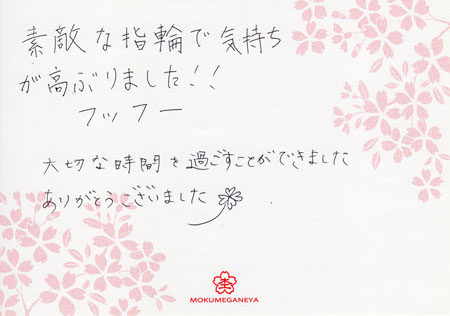 素敵な指輪で気持ち
が高ぶりました!!
フッフー
大切な時間を過ごすことができました
ありがとうございました
MOKUMEGANEYA